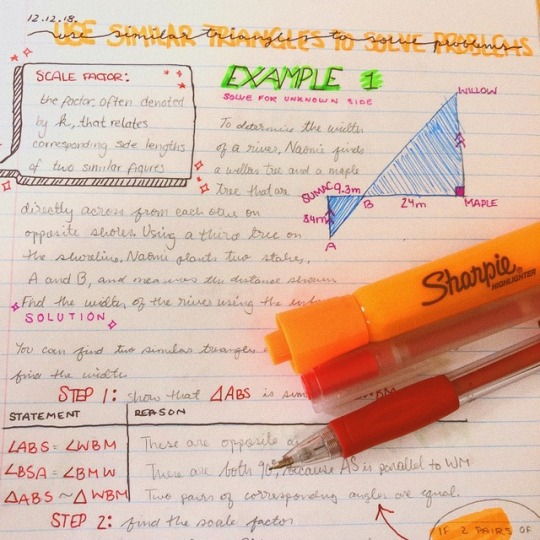 12.12.18.
USE SIMILAR TRIANGLES TO SOLVE PROBLEMS
use similar triangles to solve problems
SCALE FACTOR:
the factor, often denoted
by k, that relates
corresponding side lengths
of two similar figures
EXAMPLE 1
SOLVE FOR UNKNOWN SIDE
To determine the width
of a river, Naomi finds
a willow tree and a maple
tree that are
directly across from each other on
opposite shores. Using a third tree on
the shoreline, Naomi plants two stakes,
A and B, and measures the distance shown.
Find the width of the river using the
WILLOW
SUMAC
9.3m
B
24m
MAPLE
84m
A
SOLUTION
You can find two similar triangles
find the width
STEP 1: show that △ABS is
STATEMENT
REASON
∠ABS = ∠WBM
These are opposite
∠BSA = ∠BMW
These are both 90°, because AS is parallel to WM
△ABS ~ △WBM
Two pairs of corresponding angles are equal.
STEP 2: find the scale factor
IF 2 PAIRS OF
Sharpie
HIGHLIGHTER